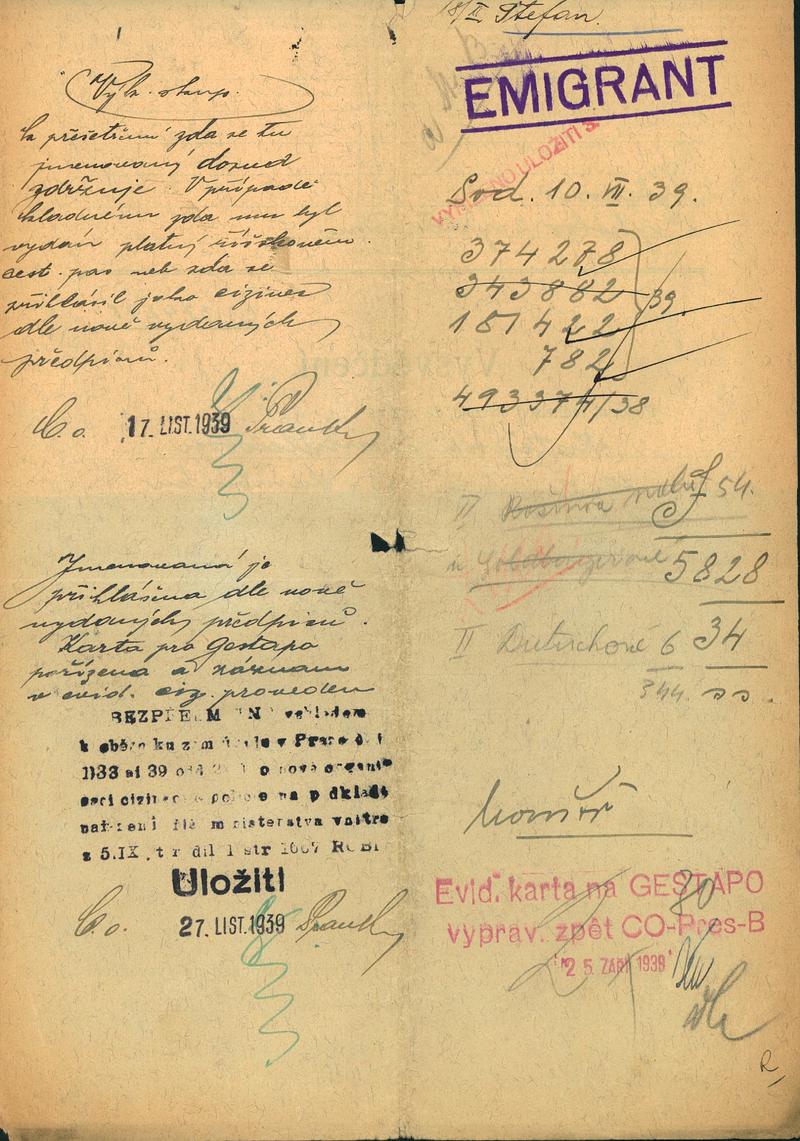 Výk. stup.
K přešetření zda se tu
jmenovaný dosud
zdržuje. V případě
kladném zda mu byl
vydán platný
cest. pas neb zda se
přihlásil jako cizinec
dle nově vydaných
předpisů.
C. o. 17. LIST. 1939
Jmenovaná je
přihlášena dle nově
vydaných předpisů.
Karta pro Gestapo
pořízena a záznam
v evid. ciz. proveden
k oběžníku zem. úřadu v Praze
1133 ai 39 o nové organi-
saci cizinecké policie na podkladě
nařízení říš. ministerstva vnitra
z 5.IX. díl I str 1667 RGBl
Uložiti
C. o. 27. LIST. 1939
18/II Stefan.
EMIGRANT
ULOŽITI
Sod. 10. VII. 39.
374278
343882
151422
782
39
493374/38
II 54.
5828
II 6 34
344.
Evid. karta na GESTAPO
vyprav. zpět CO-Pres-B
25. ZÁŘÍ 1939
R,